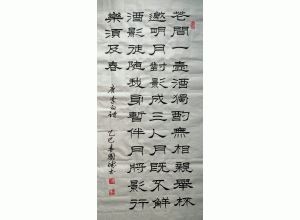 花間一壺酒獨酌無相親舉杯
邀明月對影成三人月既不解
酒影徒隨我身暫伴月將影行
樂須及春
唐李白詩
乙巳年國